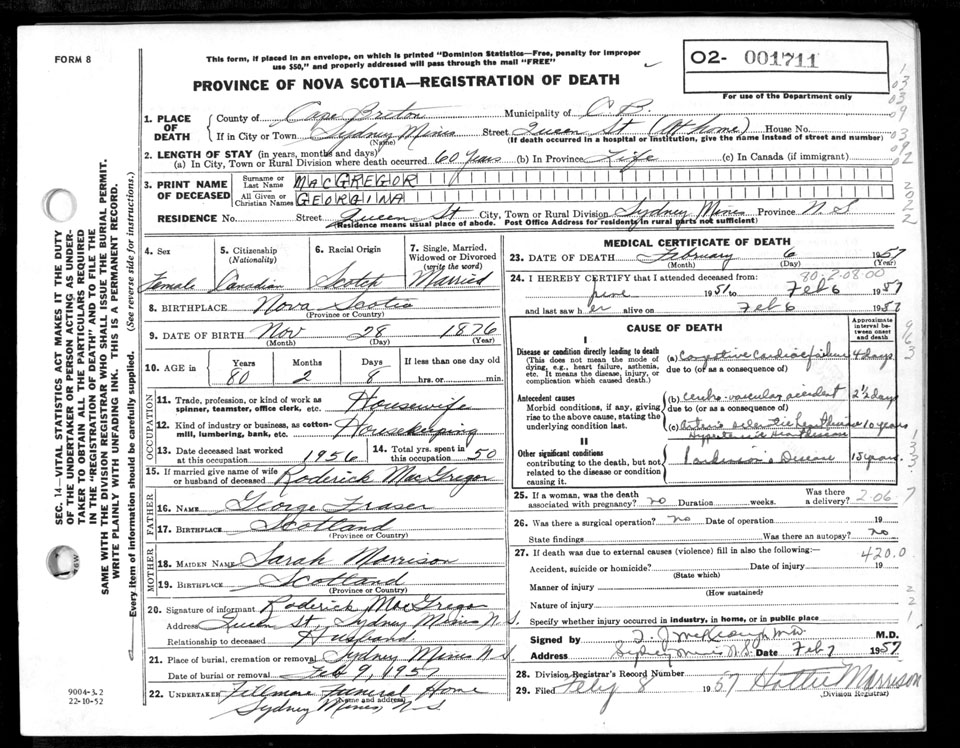 FORM 8
This form, if placed in an envelope, on which is printed "Dominion Statistics—Free, penalty for improper
use $50," and properly addressed will pass through the mail "FREE"
PROVINCE OF NOVA SCOTIA—REGISTRATION OF DEATH
O2- 001711
For use of the Department only
03
03
09
03
09
02
2
0
2
2
1. PLACE OF DEATH
County of Cape Breton Municipality of C B.
If in City or Town Sydney Mines Street Queen St (At home) House No.
(Name) (If death occurred in a hospital or institution, give the name instead of street and number)
2. LENGTH OF STAY (in years, months and days)
(a) In City, Town or Rural Division where death occurred 60 years (b) In Province Life (c) In Canada (if immigrant)
3. PRINT NAME OF DECEASED
Surname or Last Name MACGREGOR
All Given or Christian Names GEORGINA
RESIDENCE No. Street Queen St City, Town or Rural Division Sydney Mines Province N.S
(Residence means usual place of abode. Post Office Address for residents in rural parts not sufficient)
4. Sex Female
5. Citizenship (Nationality) Canadian
6. Racial Origin Scotch
7. Single, Married, Widowed or Divorced (write the word) Married
8. BIRTHPLACE Nova Scotia
(Province or Country)
9. DATE OF BIRTH Nov 28 1876
(Month) (Day) (Year)
10. AGE in
Years Months Days If less than one day old
80 2 8 hrs. or min.
OCCUPATION
11. Trade, profession, or kind of work as
spinner, teamster, office clerk, etc. Housewife
12. Kind of industry or business, as cotton-
mill, lumbering, bank, etc. Housekeeping
13. Date deceased last worked
at this occupation 1956
14. Total yrs. spent in
this occupation 50
15. If married give name of wife
or husband of deceased Roderick MacGregor
FATHER
16. NAME George Fraser
17. BIRTHPLACE Scotland
(Province or Country)
MOTHER
18. MAIDEN NAME Sarah Morrison
19. BIRTHPLACE Scotland
(Province or Country)
20. Signature of informant Roderick MacGregor
Address Queen St, Sydney Mines N.S.
Relationship to deceased Husband
21. Place of burial, cremation or removal Sydney Mines N.S.
Date of burial or removal Feb 9, 1957
22. UNDERTAKER Fillmore Funeral Home
(Name and address)
Sydney Mines, N.S.
MEDICAL CERTIFICATE OF DEATH
23. DATE OF DEATH February 6 1957
(Month) (Day) (Year)
80-2-08 00
24. I HEREBY CERTIFY that I attended deceased from:
June 1951 to Feb 6 1957
and last saw her alive on Feb 6 1957
CAUSE OF DEATH
Approximate interval between onset and death
I
Disease or condition directly leading to death
(This does not mean the mode of
dying, e.g., heart failure, asthenia,
etc. It means the disease, injury, or
complication which caused death.)
(a) Congestive Cardiac failure 4 days
due to (or as a consequence of)
Antecedent causes
Morbid conditions, if any, giving
rise to the above cause, stating the
underlying condition last.
(b) Cerebro-vascular accident 2½ days
due to (or as a consequence of)
(c) arterio sclerotic heart disease 10 years
Hypertensive heart disease
II
Other significant conditions
contributing to the death, but not
related to the disease or condition
causing it.
Parkinson's Disease 15 years.
25. If a woman, was the death
associated with pregnancy? no Duration weeks. Was there a delivery? 2.06.7
26. Was there a surgical operation? no Date of operation 19
State findings Was there an autopsy? no
27. If death was due to external causes (violence) fill in also the following:— 420.0
Accident, suicide or homicide? Date of injury 19
(State which)
Manner of injury
(How sustained)
Nature of injury
Specify whether injury occurred in industry, in home, or in public place
Signed by M.D.
Address Sydney Mines N.S. Date Feb 7 1957
28. Division Registrar's Record Number
29. Filed Feby 8 1957 Hattie Morrison
(Division Registrar)
SEC. 14—VITAL STATISTICS ACT MAKES IT THE DUTY
OF THE UNDERTAKER OR PERSON ACTING AS UNDER-
TAKER TO OBTAIN ALL THE PARTICULARS REQUIRED
IN THE "REGISTRATION OF DEATH" AND TO FILE THE
SAME WITH THE DIVISION REGISTRAR WHO SHALL ISSUE THE BURIAL PERMIT.
WRITE PLAINLY WITH UNFADING INK. THIS IS A PERMANENT RECORD.
Every item of information should be carefully supplied. (See reverse side for instructions.)
9004-3.2
22-10-52